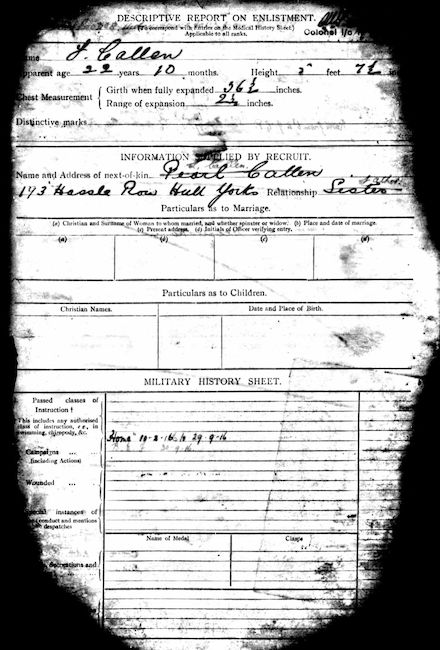 DESCRIPTIVE REPORT ON ENLISTMENT.
[To correspond with Entries on the Medical History Sheet.]
Applicable to all ranks.
Colonel I/c
Callen
apparent age 22 years 10 months. Height feet 7½ in
Chest Measurement { Girth when fully expanded 36½ inches.
Range of expansion 2½ inches.
Distinctive marks
INFORMATION SUPPLIED BY RECRUIT.
Callen
Name and Address of next-of-kin Pearl Callen
Father
193 Hassle Row Hull Yorks Relationship Sister
Particulars as to Marriage.
(a) Christian and Surname of Woman to whom married, and whether spinster or widow. (b) Place and date of marriage.
(c) Present address. (d) Initials of Officer verifying entry.
(a) (b) (c) (d)
Particulars as to Children.
Christian Names. Date and Place of Birth.
MILITARY HISTORY SHEET.
Passed classes of
Instruction †
This includes any authorised
class of instruction, e.g., in
swimming, chiropody, &c.
Home 10-2-16 to 29-9-16
Campaigns ... 30-9-16
(including Actions)
Wounded ...
Special instances of
conduct and mentions
despatches
Name of Medal Clasps
decorations and